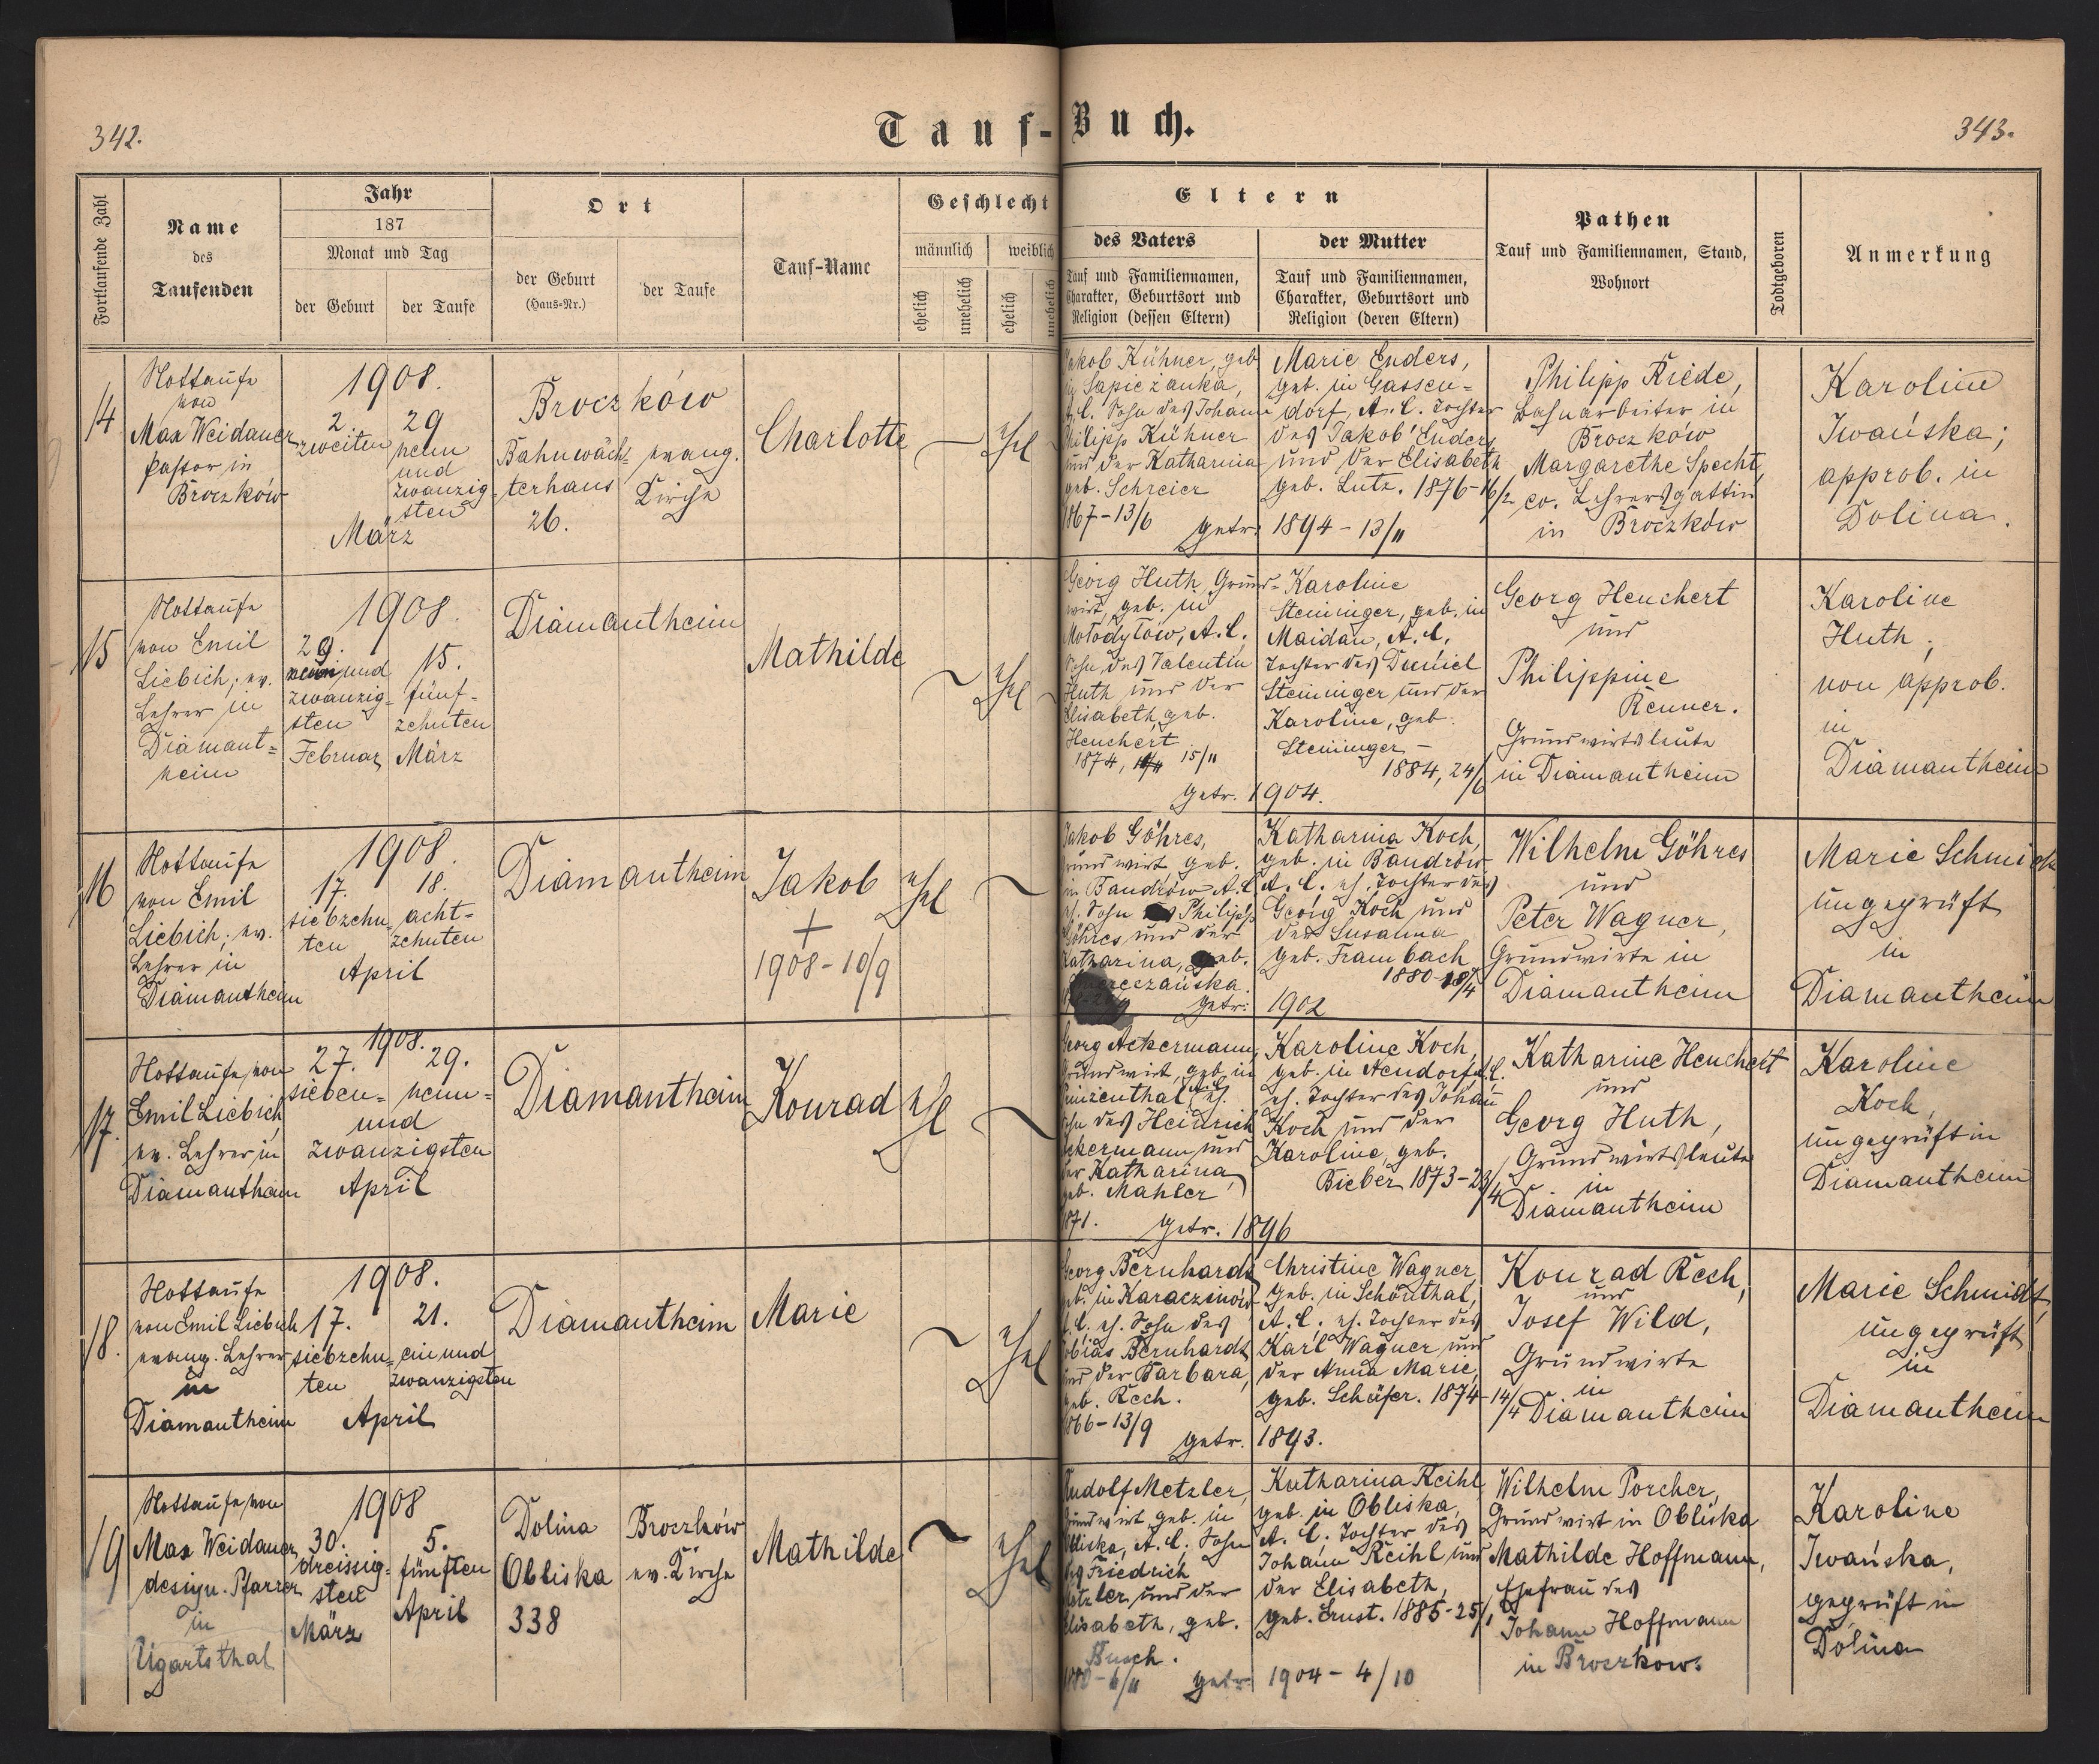 342.
Tauf-Buch.
343.
Fortlaufende Zahl
Name
des
Taufenden
Jahr
187
Monat und Tag
der Geburt
der Taufe
Ort
der Geburt
(Haus-Nr.)
der Taufe
Tauf-Name
Geschlecht
männlich
weiblich
ehelich
unehelich
ehelich
unehelich
Eltern
des Vaters
Tauf und Familiennamen,
Charakter, Geburtsort und
Religion (dessen Eltern)
der Mutter
Tauf und Familiennamen,
Charakter, Geburtsort und
Religion (deren Eltern)
Pathen
Tauf und Familiennamen, Stand,
Wohnort
Todtgeboren
Anmerkung
14
Nottaufe
von
Max Weidauer
Pastor in
Broczków
1908.
2.
zweiten
29
neun
und
zwanzig-
sten
März
Broczków
Bahnwäch-
terhaus
26.
evang.
Kirche
Charlotte
ehel
Jakob Kühner, geb
in Sapieżanka,
A. C. Sohn des Johann
Philipp Kühner
und der Katharina
geb. Schreier
1867-13/6
getr. 1894-13/11
Marie Enders,
geb. in Gassen-
dorf, A. C. Tochter
des Jakob Enders
und der Elisabeth
geb. Lutz. 1876-16/2
Philipp Riede,
Bahnarbeiter in
Broczków
Margarethe Specht,
ev. Lehrersgattin
in Broczków
Karoline
Iwańska;
approb. in
Dolina.
15
Nottaufe
von Emil
Liebich; ev.
Lehrer in
Diamant-
heim
1908.
29.
neunund
zwanzig-
sten
Februar
15.
fünf-
zehnten
März
Diamantheim
Mathilde
ehel
Georg Huth, Grund-
wirt, geb. in
Mołodyłów, A. C.
Sohn des Valentin
Huth und der
Elisabeth, geb.
Heuchert
1874, 15/11
Karoline
Steininger, geb. in
Maidan, A. C.
Tochter des Daniel
Steininger und der
Karoline, geb.
Steininger -
1884, 24/6
getr. 1904.
Georg Heuchert
und
Philippine
Renner.
Grundwirtsleute
in Diamantheim
Karoline
Huth,
von approb.
in
Diamantheim
16
Nottaufe
von Emil
Liebich; ev.
Lehrer in
Diamantheim
1908.
17.
siebzehn-
ten
18.
acht-
zehnten
April
Diamantheim
Jakob
+
1908-10/9
ehel
Jakob Göhres,
Grundwirt geb.
in Bandrów A. C.
eh. Sohn Philipp
Göhres und der
Katharina, geb.
getr. 1902
Katharina Koch,
geb. in Bandrów
A. C. eh. Tochter des
Georg Koch und
der Susanna
geb. Frambach
1880-18/4
Wilhelm Göhres
und
Peter Wagner,
Grundwirte in
Diamantheim
Marie Schmidt
ungeprüft
in
Diamantheim
17.
Nottaufe von
Emil Liebich,
ev. Lehrer in
Diamantheim
1908.
27.
sieben-
29.
neun-
und
zwanzigsten
April
Diamantheim
Konrad
ehel
Georg Ackermann,
Grundwirt, geb. in
A. C. eh.
Sohn des Heinrich
Ackermann und
der Katharina,
geb. Mahler
1871.
getr. 1896
Karoline Koch,
geb. in Neudorf, A. C.
eh. Tochter des Johann
Koch und der
Karoline, geb.
Bieber 1873-23/4
Katharine Heuchert
und
Georg Huth,
Grundwirtsleute
in
Diamantheim
Karoline
Koch,
ungeprüft in
Diamantheim
18.
Nottaufe
von Emil Liebich
evang. Lehrer
in
Diamantheim
1908.
17.
siebzehn-
ten
21.
ein und
zwanzigsten
April
Diamantheim
Marie
ehel
Georg Bernhardt
geb. in Karaczinów
A. C. eh. Sohn des
Tobias Bernhardt
und der Barbara,
geb. Rech.
1866-13/9
getr. 1893.
Christine Wagner
geb. in Schönthal,
A. C. eh. Tochter des
Karl Wagner und
der Anna Marie,
geb. Schäfer. 1874-14/4
Konrad Rech,
und
Josef Wild,
Grundwirte
in
Diamantheim
Marie Schmidt,
ungeprüft
in
Diamantheim
19
Nottaufe von
Max Weidauer
design. Pfarrer
in
Ugartsthal
1908
30.
dreissig-
sten
März
5.
fünften
April
Dolina
Obliska
338
Broczków
ev. Kirche
Mathilde
ehel
Rudolf Metzler,
Grundwirt, geb. in
Obliska, A. C. Sohn
des Friedrich
Metzler und der
Elisabeth, geb.
Busch.
getr. 1904-4/10
Katharina Reihl
geb. in Obliska,
A. C. Tochter des
Johann Reihl und
der Elisabeth,
geb. Ernst. 1885-25/1
Wilhelm Porcher,
Grundwirt in Obliska
Mathilde Hoffmann,
Ehefrau des
Johann Hoffmann
in Broczkow.
Karoline
Iwańska,
geprüft in
Dolina